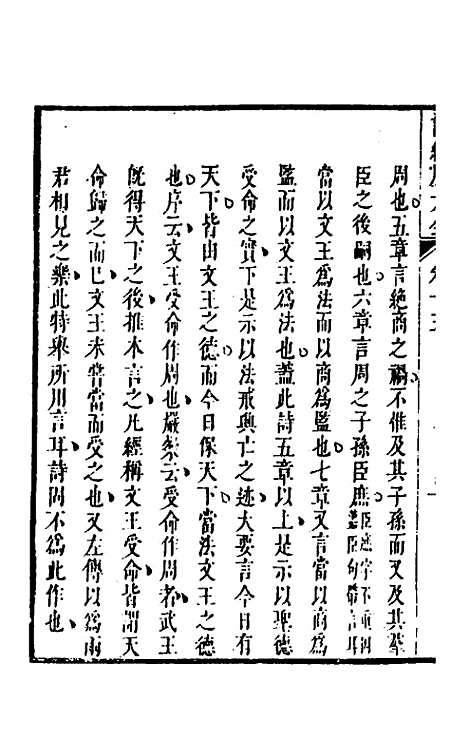 周也五章言絶商之禍不惟及其子孫而又及其羣
臣之後嗣也六章言周之子孫臣庶
當以文王為法而以商為監也七章又言當以商為
監而以文王為法也蓋此詩五章以上是示以聖德
受命之實下是示以法戒興亡之迹大要言今日有
天下皆由文王之德而今日保天下當法文王之德
也序云文王受命作周也嚴粲云受命作周者武王
旣得天下之後推本言之凡經稱文王受命皆謂天
命歸之而已文王未嘗當而受之也又左傳以為兩
君相見之樂此特舉所用言耳詩固不為此作也